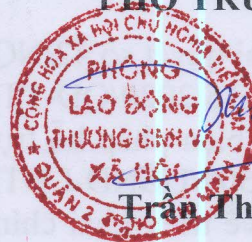 PHÓ TRƯ
CỘNG HÒA XÃ HỘI CHỦ NGHĨA VIỆT
PHÒNG
LAO ĐỘNG
THƯƠNG BINH VÀ
XÃ HỘI
QUẬN 2
Trần Th